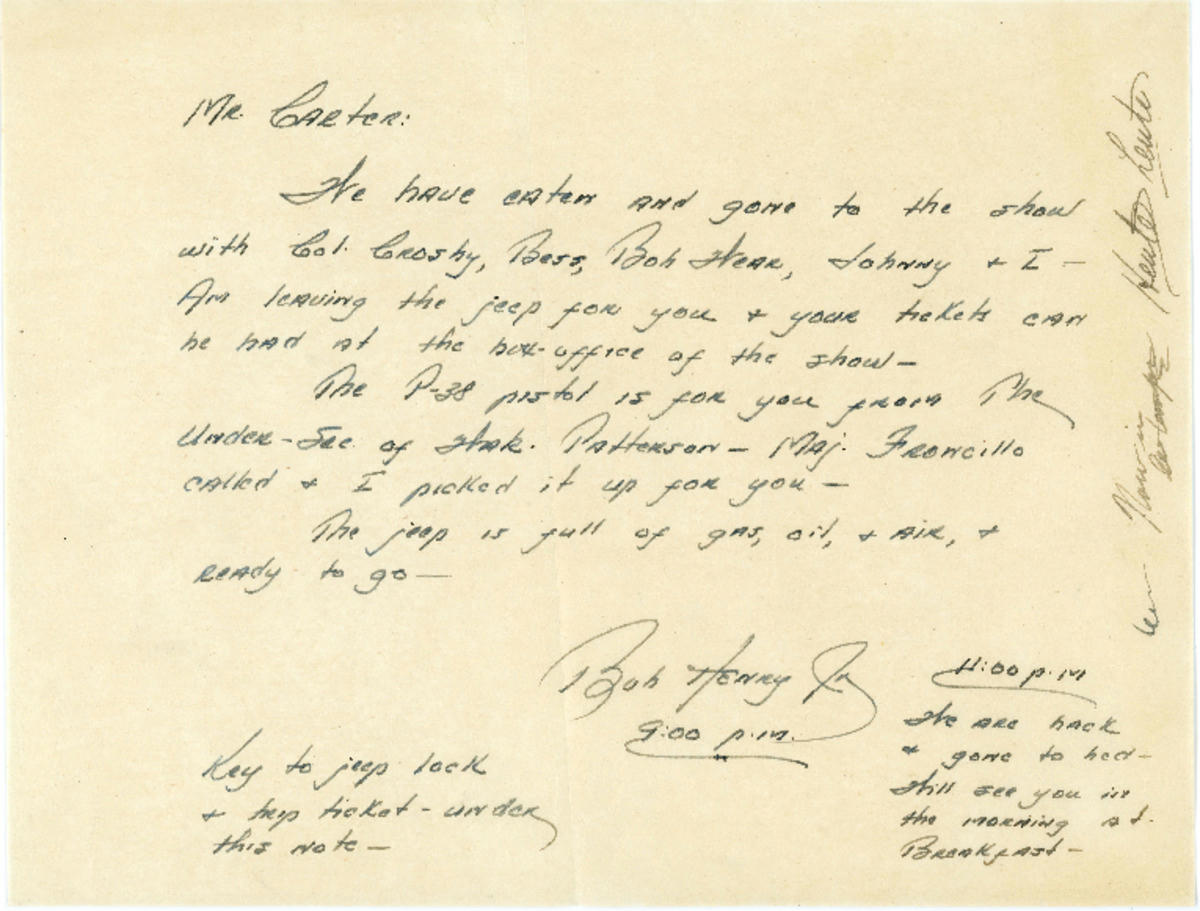 Mr. Carter:
We have eaten and gone to the show
with Col. Crosby, Bess, Bob Wear, Johnny & I —
Am leaving the jeep for you & your tickets can
be had at the box-office of the show —
The P-38 pistol is for you from The
Under-Sec of War. Patterson — Maj. Francillo
called & I picked it up for you —
The jeep is full of gas, oil, & air, &
ready to go —
Bob Henry Jr
9:00 p.m.
Key to jeep lock
& trip ticket - under
this note —
11:00 p.m
We are back
& gone to bed —
Will see you in
the morning at
Breakfast —